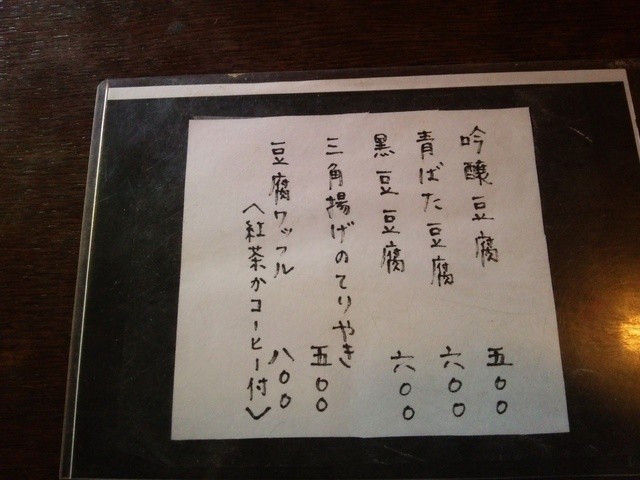 吟醸豆腐 五〇〇
青ばた豆腐 六〇〇
黒豆豆腐 六〇〇
三角揚げのてりやき 五〇〇
豆腐ワッフル 八〇〇
〈紅茶かコーヒー付〉